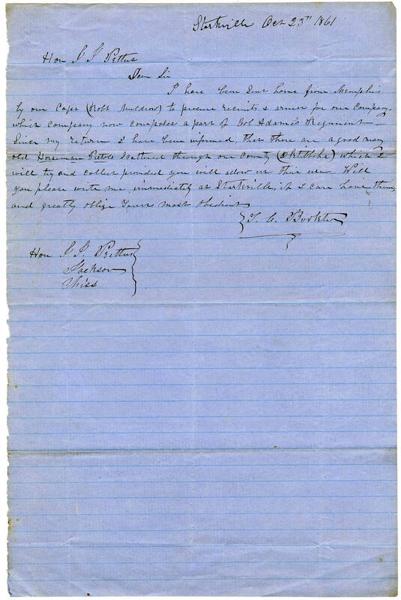 Starkville Oct 23rd 1861
Hon J J Pettus
Dear Sir
I have been sent home from Memphis
by our Capt (Robt Muldrow) to procure recruits & arms for our Company,
which company now composes a part of Col Adams Regiment —
Since my return I have been informed, that there are a good many
old Horseman Pistols scattered through our County (Oktibbha) which I
will try and collect provided you will allow us their use. Will
you please write me immediately at Starkville, if I can have them
and greatly oblige Yours most obedient
T. C.
Hon J. J. Pettus
Jackson
Miss